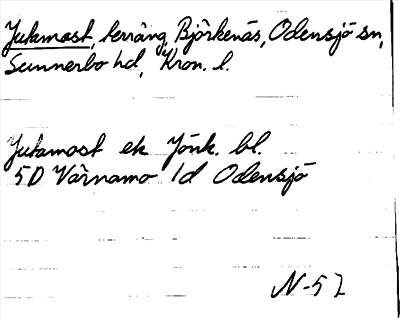 Jutamost, terräng, Björkenäs, Odensjö sn,
Sunnerbo hd, Kron. l.
Jutamost ek Jönk. bl.
5D Värnamo 1d Odensjö
N-57